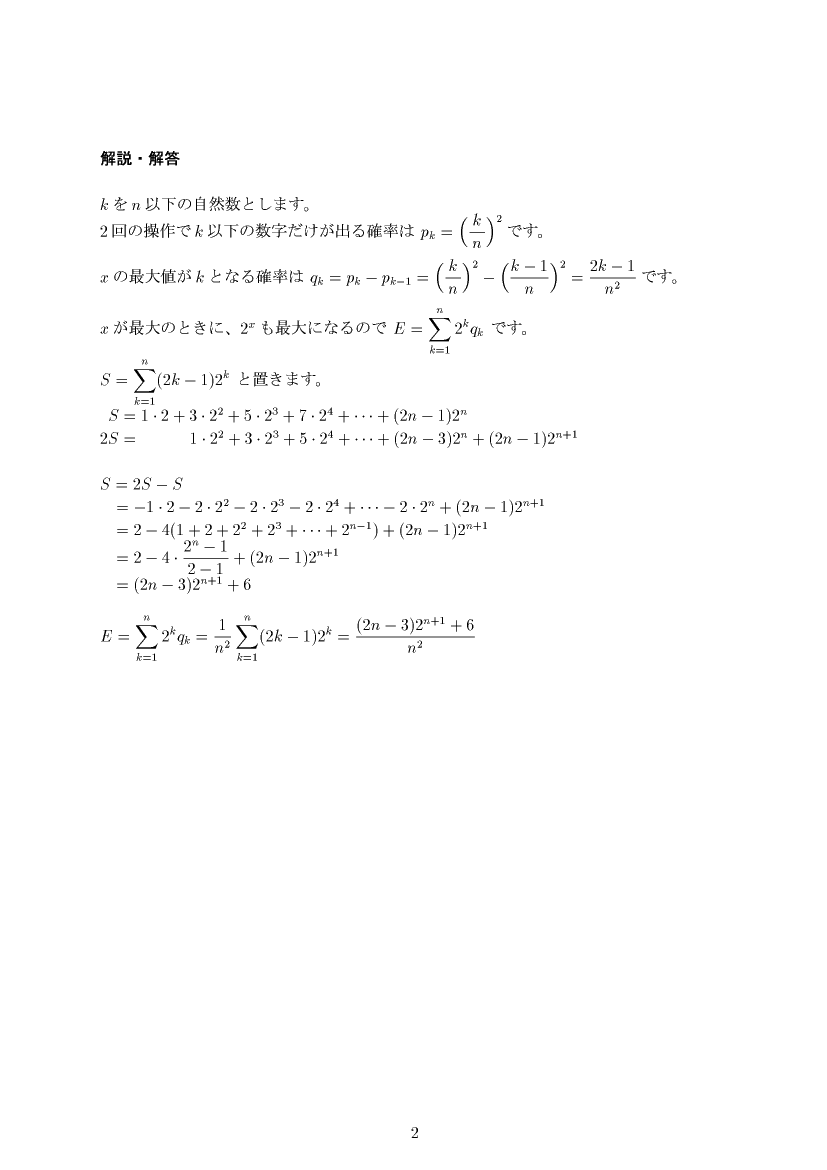 解説・解答
k を n 以下の自然数とします。
2 回の操作で k 以下の数字だけが出る確率は $p_k = \left(\frac{k}{n}\right)^2$ です。
x の最大値が k となる確率は $q_k = p_k - p_{k-1} = \left(\frac{k}{n}\right)^2 - \left(\frac{k-1}{n}\right)^2 = \frac{2k-1}{n^2}$ です。
x が最大のときに、$2^x$ も最大になるので $E = \sum_{k=1}^{n} 2^k q_k$ です。
$S = \sum_{k=1}^{n} (2k-1)2^k$ と置きます。
$S = 1 \cdot 2 + 3 \cdot 2^2 + 5 \cdot 2^3 + 7 \cdot 2^4 + \cdots + (2n-1)2^n$
$2S = 1 \cdot 2^2 + 3 \cdot 2^3 + 5 \cdot 2^4 + \cdots + (2n-3)2^n + (2n-1)2^{n+1}$
$S = 2S - S$
$= -1 \cdot 2 - 2 \cdot 2^2 - 2 \cdot 2^3 - 2 \cdot 2^4 + \cdots - 2 \cdot 2^n + (2n-1)2^{n+1}$
$= 2 - 4(1 + 2 + 2^2 + 2^3 + \cdots + 2^{n-1}) + (2n-1)2^{n+1}$
$= 2 - 4 \cdot \frac{2^n - 1}{2 - 1} + (2n-1)2^{n+1}$
$= (2n-3)2^{n+1} + 6$
$E = \sum_{k=1}^{n} 2^k q_k = \frac{1}{n^2} \sum_{k=1}^{n} (2k-1)2^k = \frac{(2n-3)2^{n+1} + 6}{n^2}$
2